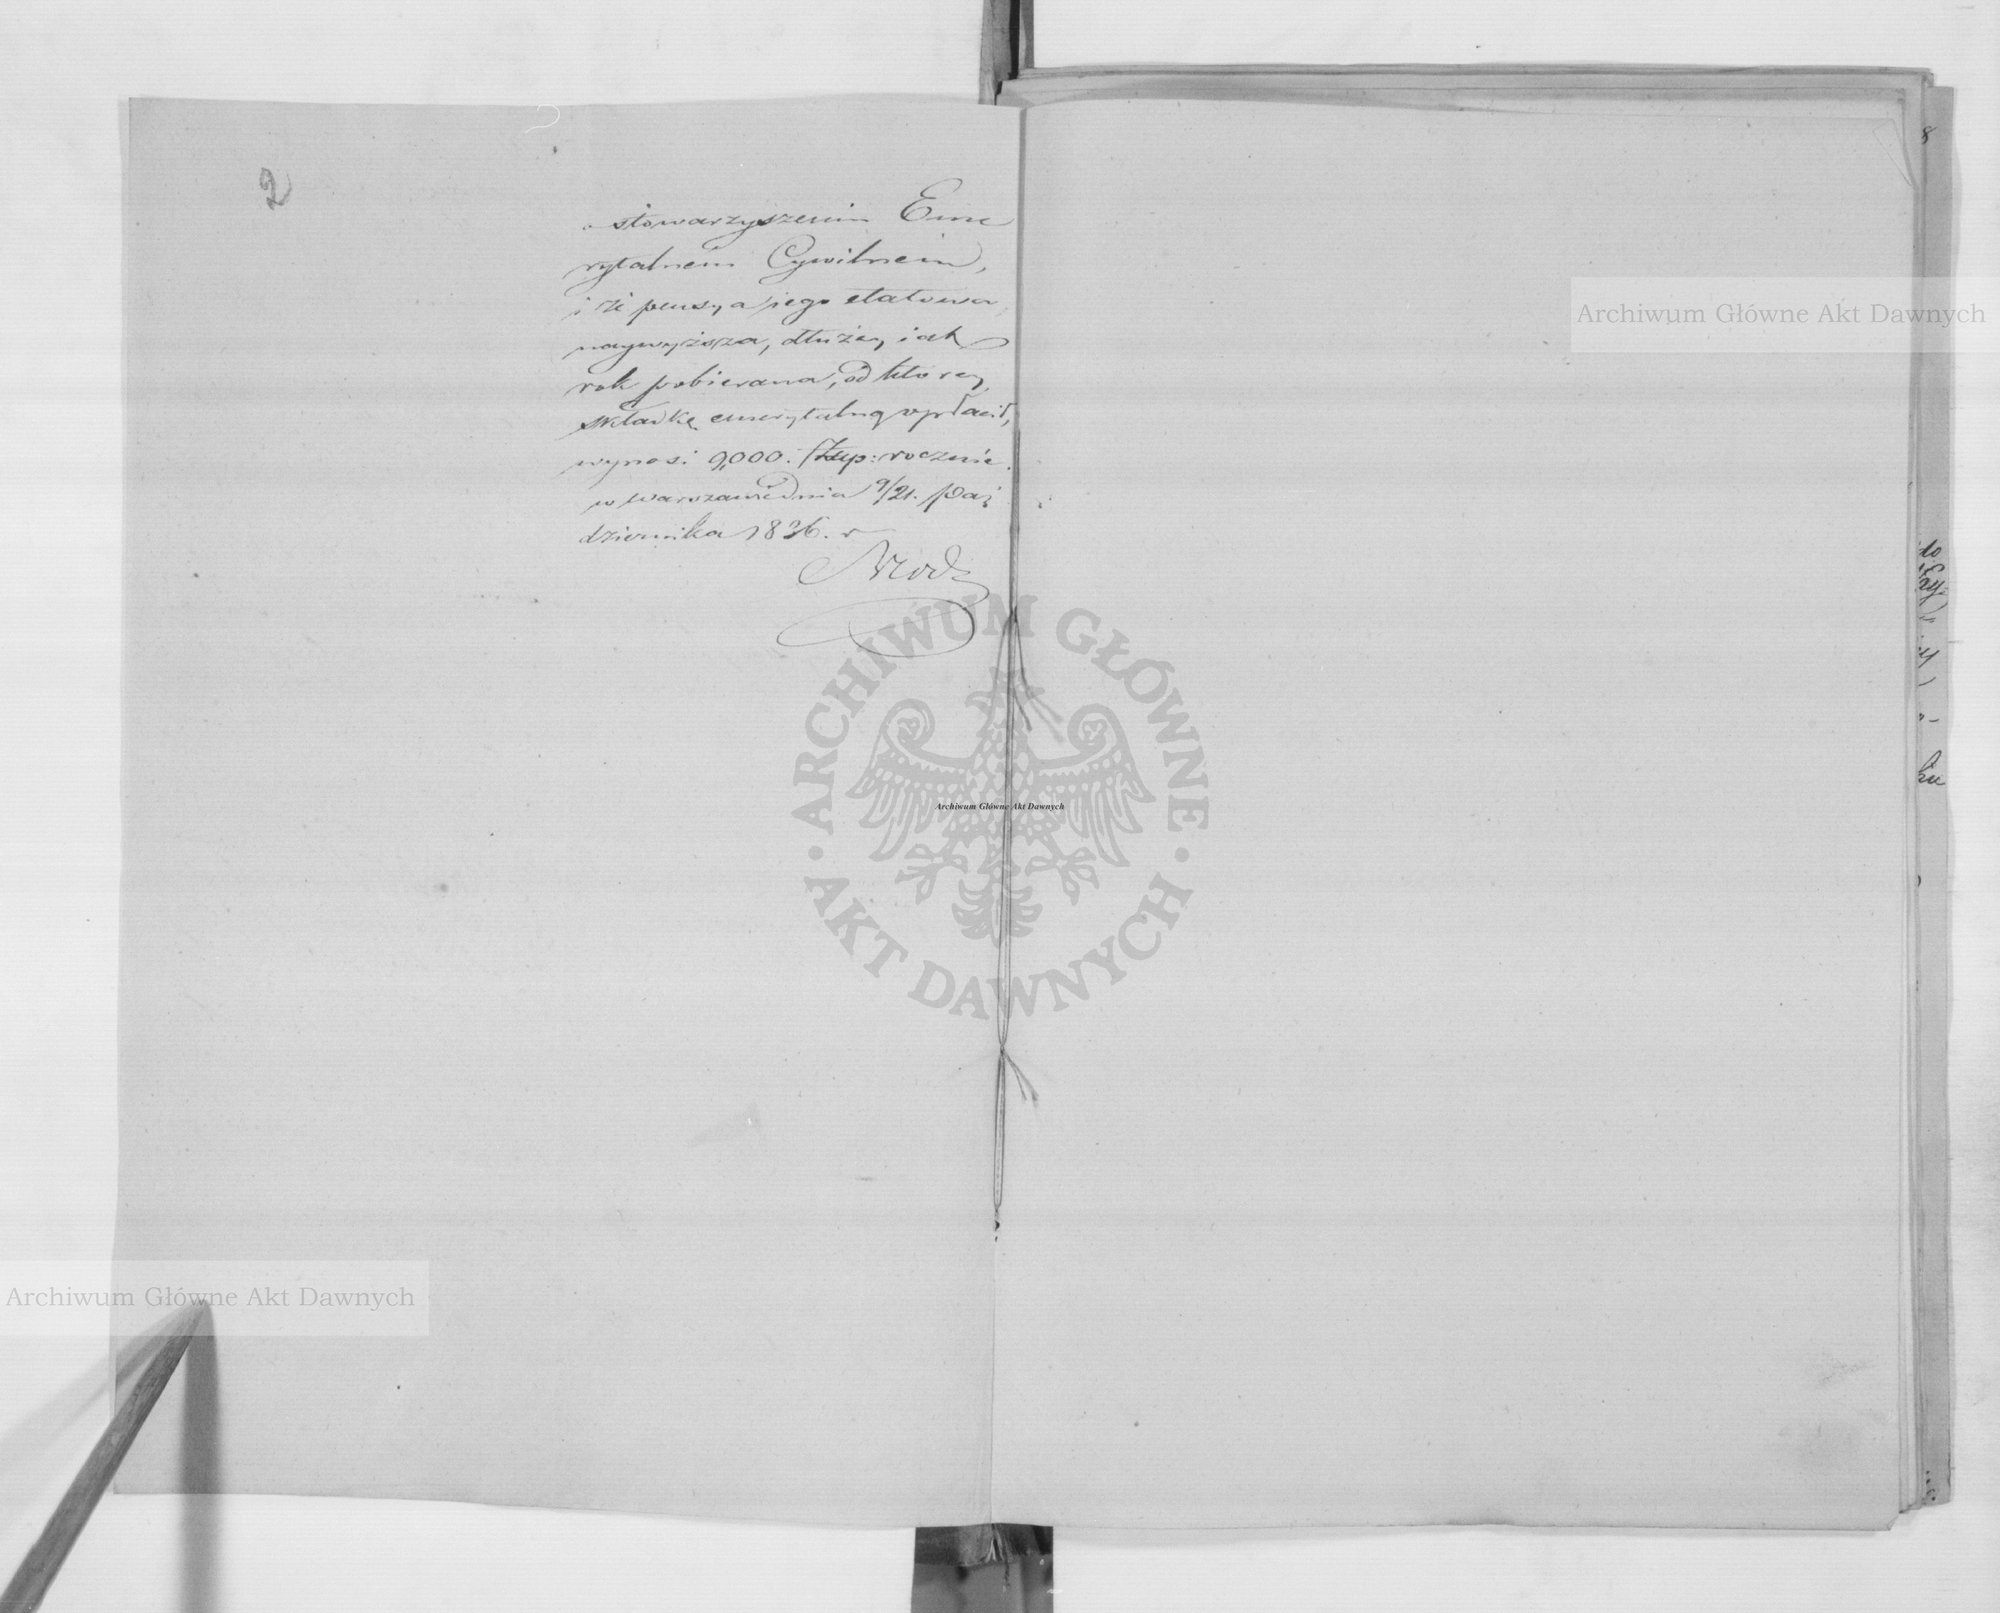 2
o stowarzyszeniu Eme
rytalnem Cywilnem,
i że pensya jego etatowa
naywyższa, dłużey iak
rok pobierana, od którey
składkę emerytalną opłacił,
wynosi 9,000. Złłp: rocznie.
w Warszawie dnia 9/21. paź
dziernika 1836. r
Archiwum Główne Akt Dawnych
ARCHIWUM GŁÓWNE
AKT DAWNYCH
Archiwum Główne Akt Dawnych
Archiwum Główne Akt Dawnych
8